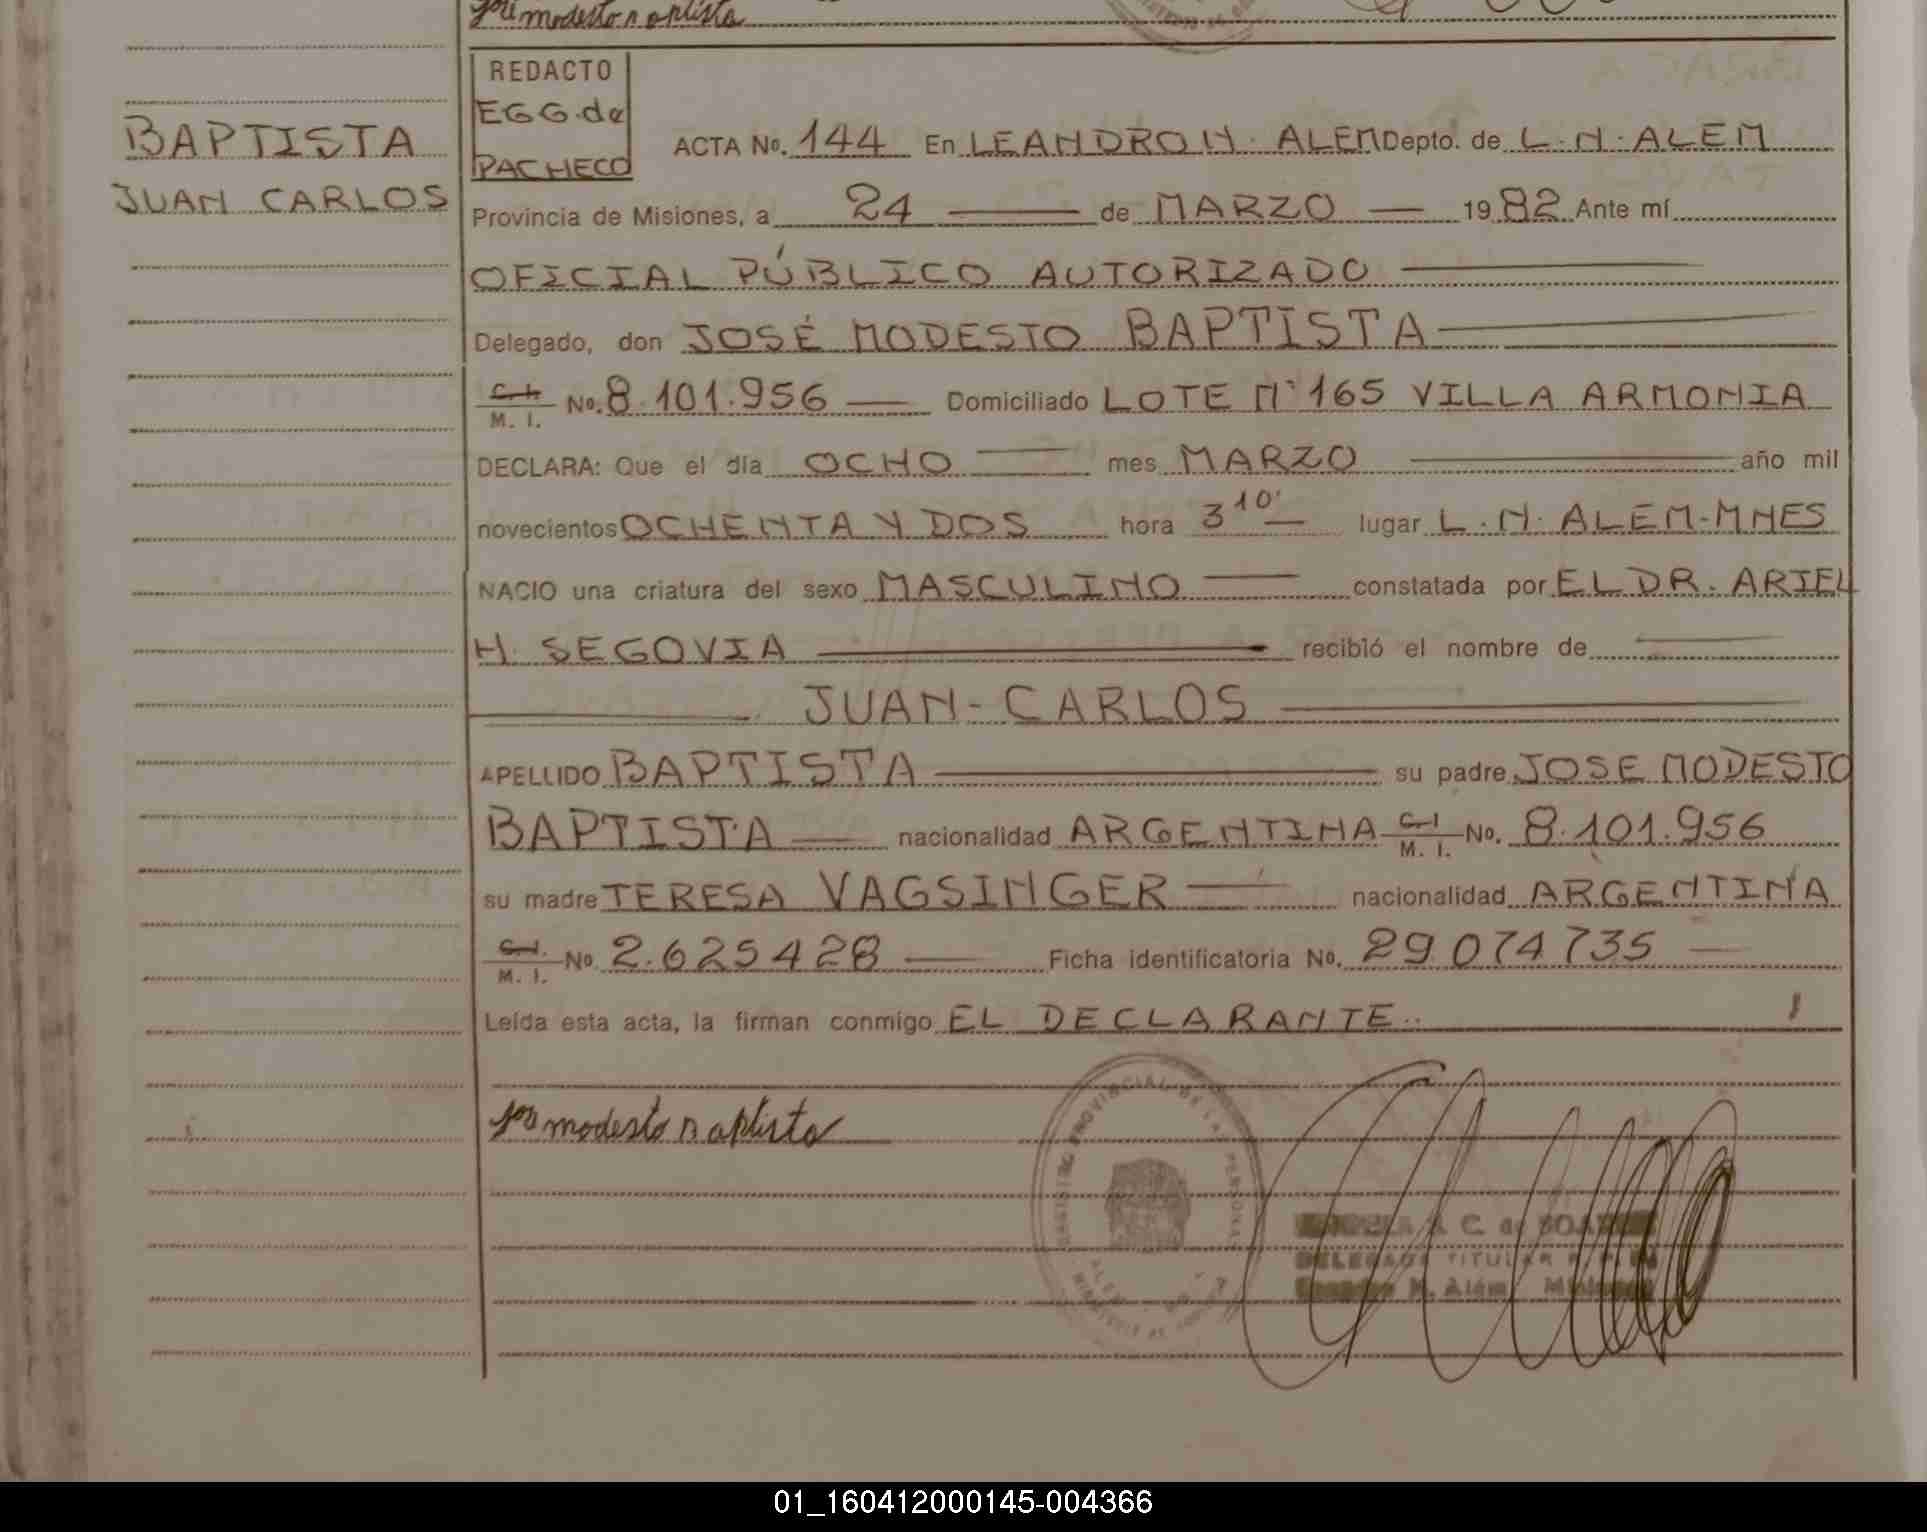 José modesto Baptista
REDACTO
EGG. de
PACHECO
BAPTISTA
JUAN CARLOS
ACTA No. 144 En LEANDRO N. ALEM Depto. de L. N. ALEM
Provincia de Misiones, a 24 de MARZO 1982 Ante mí
OFICIAL PÚBLICO AUTORIZADO
Delegado, don JOSÉ MODESTO BAPTISTA
C. I. M. I. No. 8.101.956 Domiciliado LOTE N° 165 VILLA ARMONIA
DECLARA: Que el día OCHO mes MARZO año mil
novecientos OCHENTA Y DOS hora 3 10' lugar L. N. ALEM-MNES
NACIO una criatura del sexo MASCULINO constatada por EL DR. ARIEL
H. SEGOVIA recibió el nombre de
JUAN-CARLOS
APELLIDO BAPTISTA su padre JOSE MODESTO
BAPTISTA nacionalidad ARGENTINA C. I. M. I. No. 8.101.956
su madre TERESA VAGSINGER nacionalidad ARGENTINA
C. I. M. I. No. 2.625428 Ficha identificatoria No. 29.074735
Leída esta acta, la firman conmigo EL DECLARANTE..
José modesto Baptista
REGISTRO PROVINCIAL DE LAS PERSONAS
C. de SOA
DELEGADA TITULAR
N. Alem Misiones
01_160412000145-004366